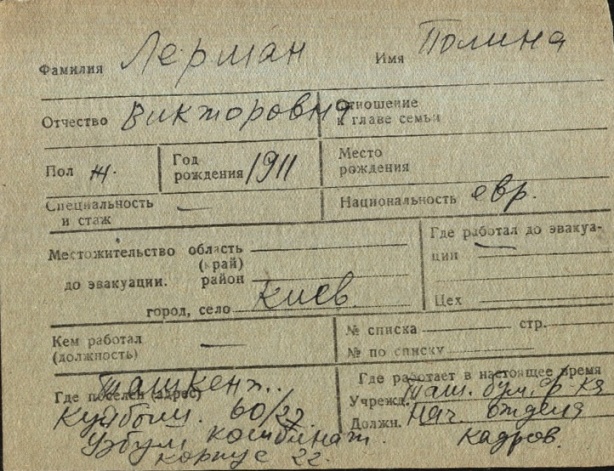 Фамилия Лерман Имя Полина
Отчество Викторовна Отношение к главе семьи
Пол ж. Год рождения 1911 Место рождения
Специальность и стаж — Национальность евр.
Местожительство область (край)
до эвакуации. район
город, село Киев
Где работал до эвакуации —
Цех
Кем работал (должность) —
№ списка стр.
№ по списку
Где поселен (адрес) Ташкент..
Куйбыш. 60/27
Узбум комбинат.
корпус 22.
Где работает в настоящее время
Учрежд. Таш. бум. ф-ка
Должн. Нач. отдела
кадров.